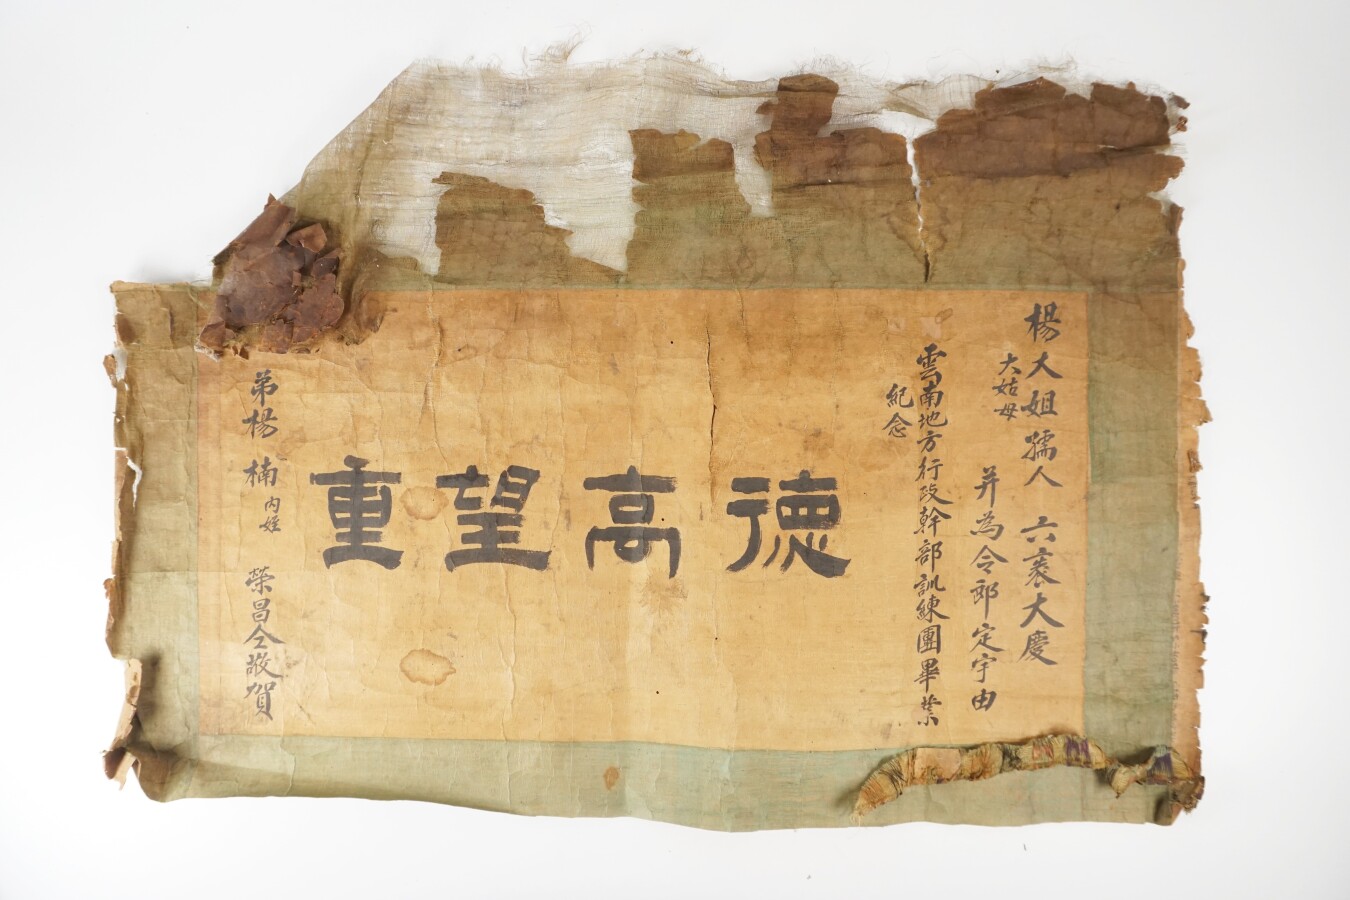 楊大姐孺人 六袠大慶
大姑母
并為令郎定宇由
雲南地方行政幹部訓練團畢業
紀念
德高望重
弟楊 楠
内姪
榮昌仝敬賀